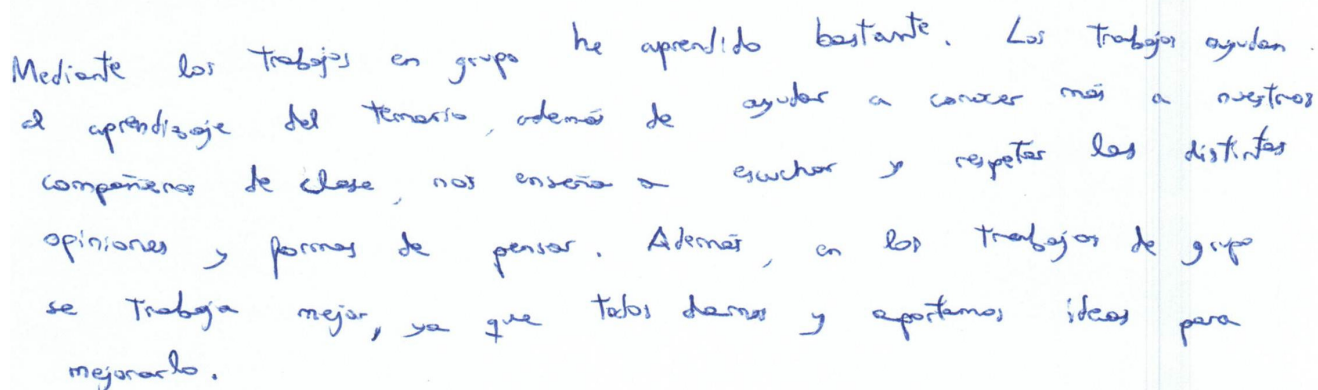 Mediante los trabajos en grupo he aprendido bastante. Los trabajos ayudan
al aprendizaje del temario, además de ayudar a conocer más a nuestros
compañeros de clase, nos enseña a escuchar y respetar las distintas
opiniones y formas de pensar. Además, en los trabajos de grupo
se trabaja mejor, ya que todos damos y aportamos ideas para
mejorarlo.